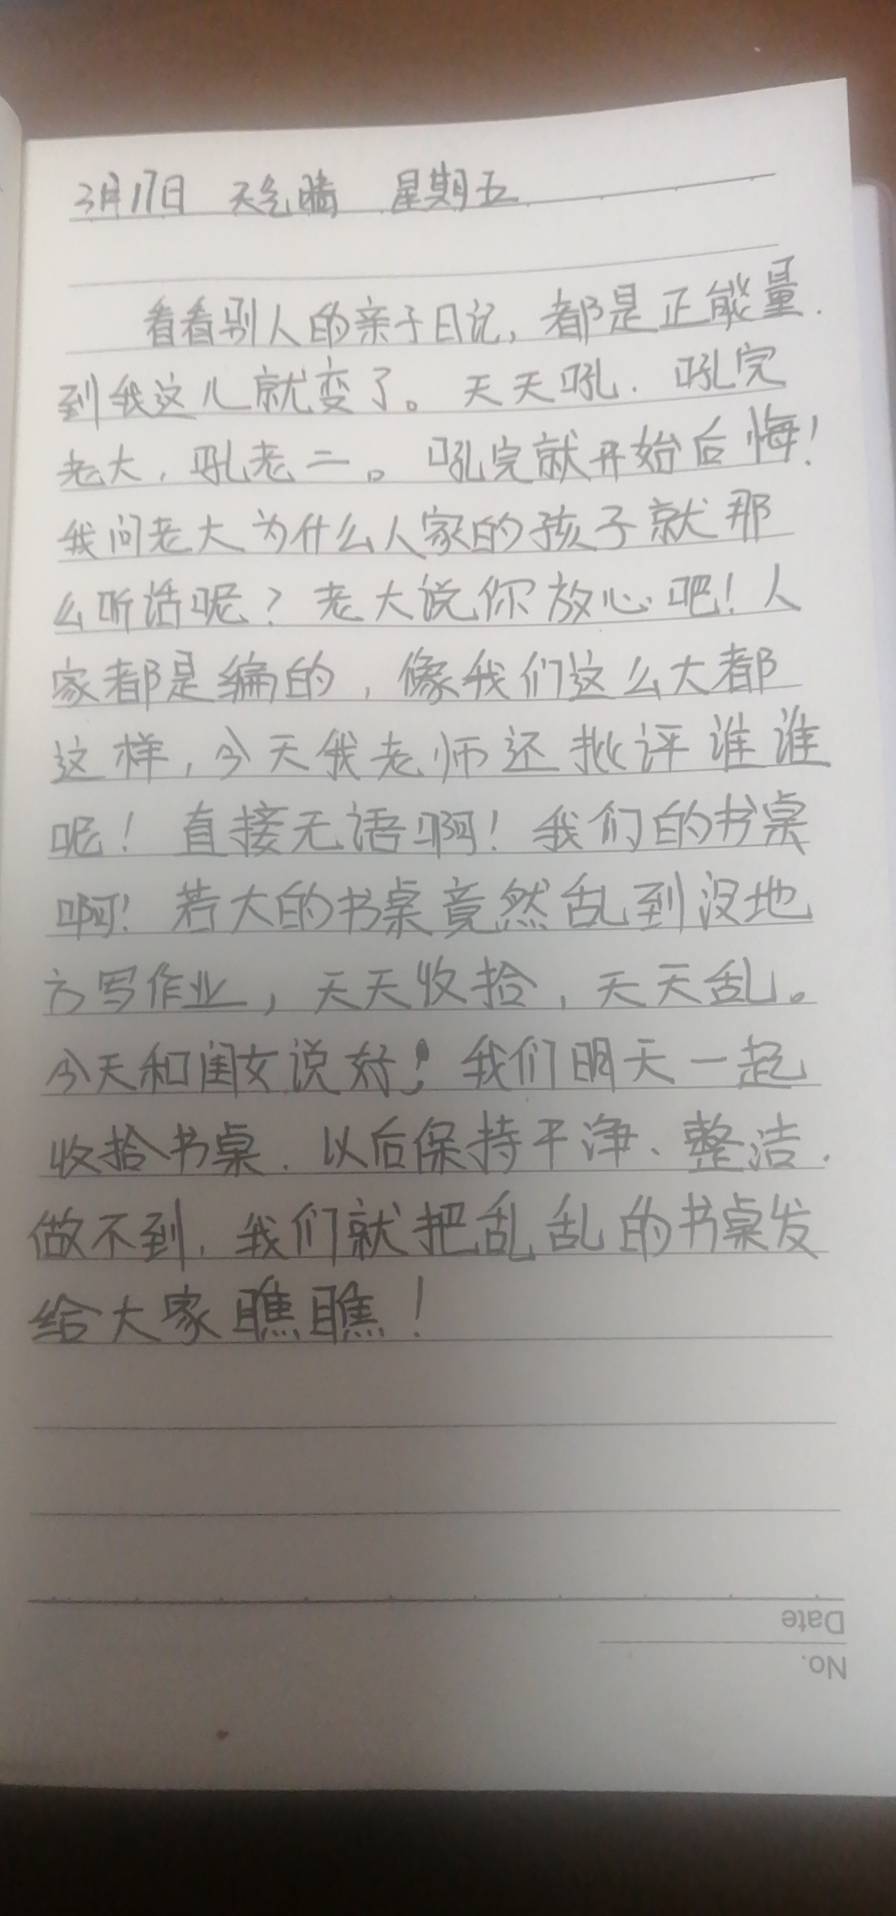 3月17日 天气晴 星期五
看看别人的亲子日记，都是正能量.
到我这儿就变了。天天吼. 吼完
老大，吼老二。吼完就开始后悔！
我问老大为什么人家的孩子就那
么听话呢？老大说你放心吧！人
家都是编的，像我们这么大都
这样，今天我老师还批评谁谁
呢！直接无语啊！我们的书桌
啊！若大的书桌竟然乱到没地
方写作业，天天收拾，天天乱。
今天和闺女说好！我们明天一起
收拾书桌. 以后保持干净、整洁.
做不到，我们就把乱乱的书桌发
给大家瞧瞧！
Date
No.